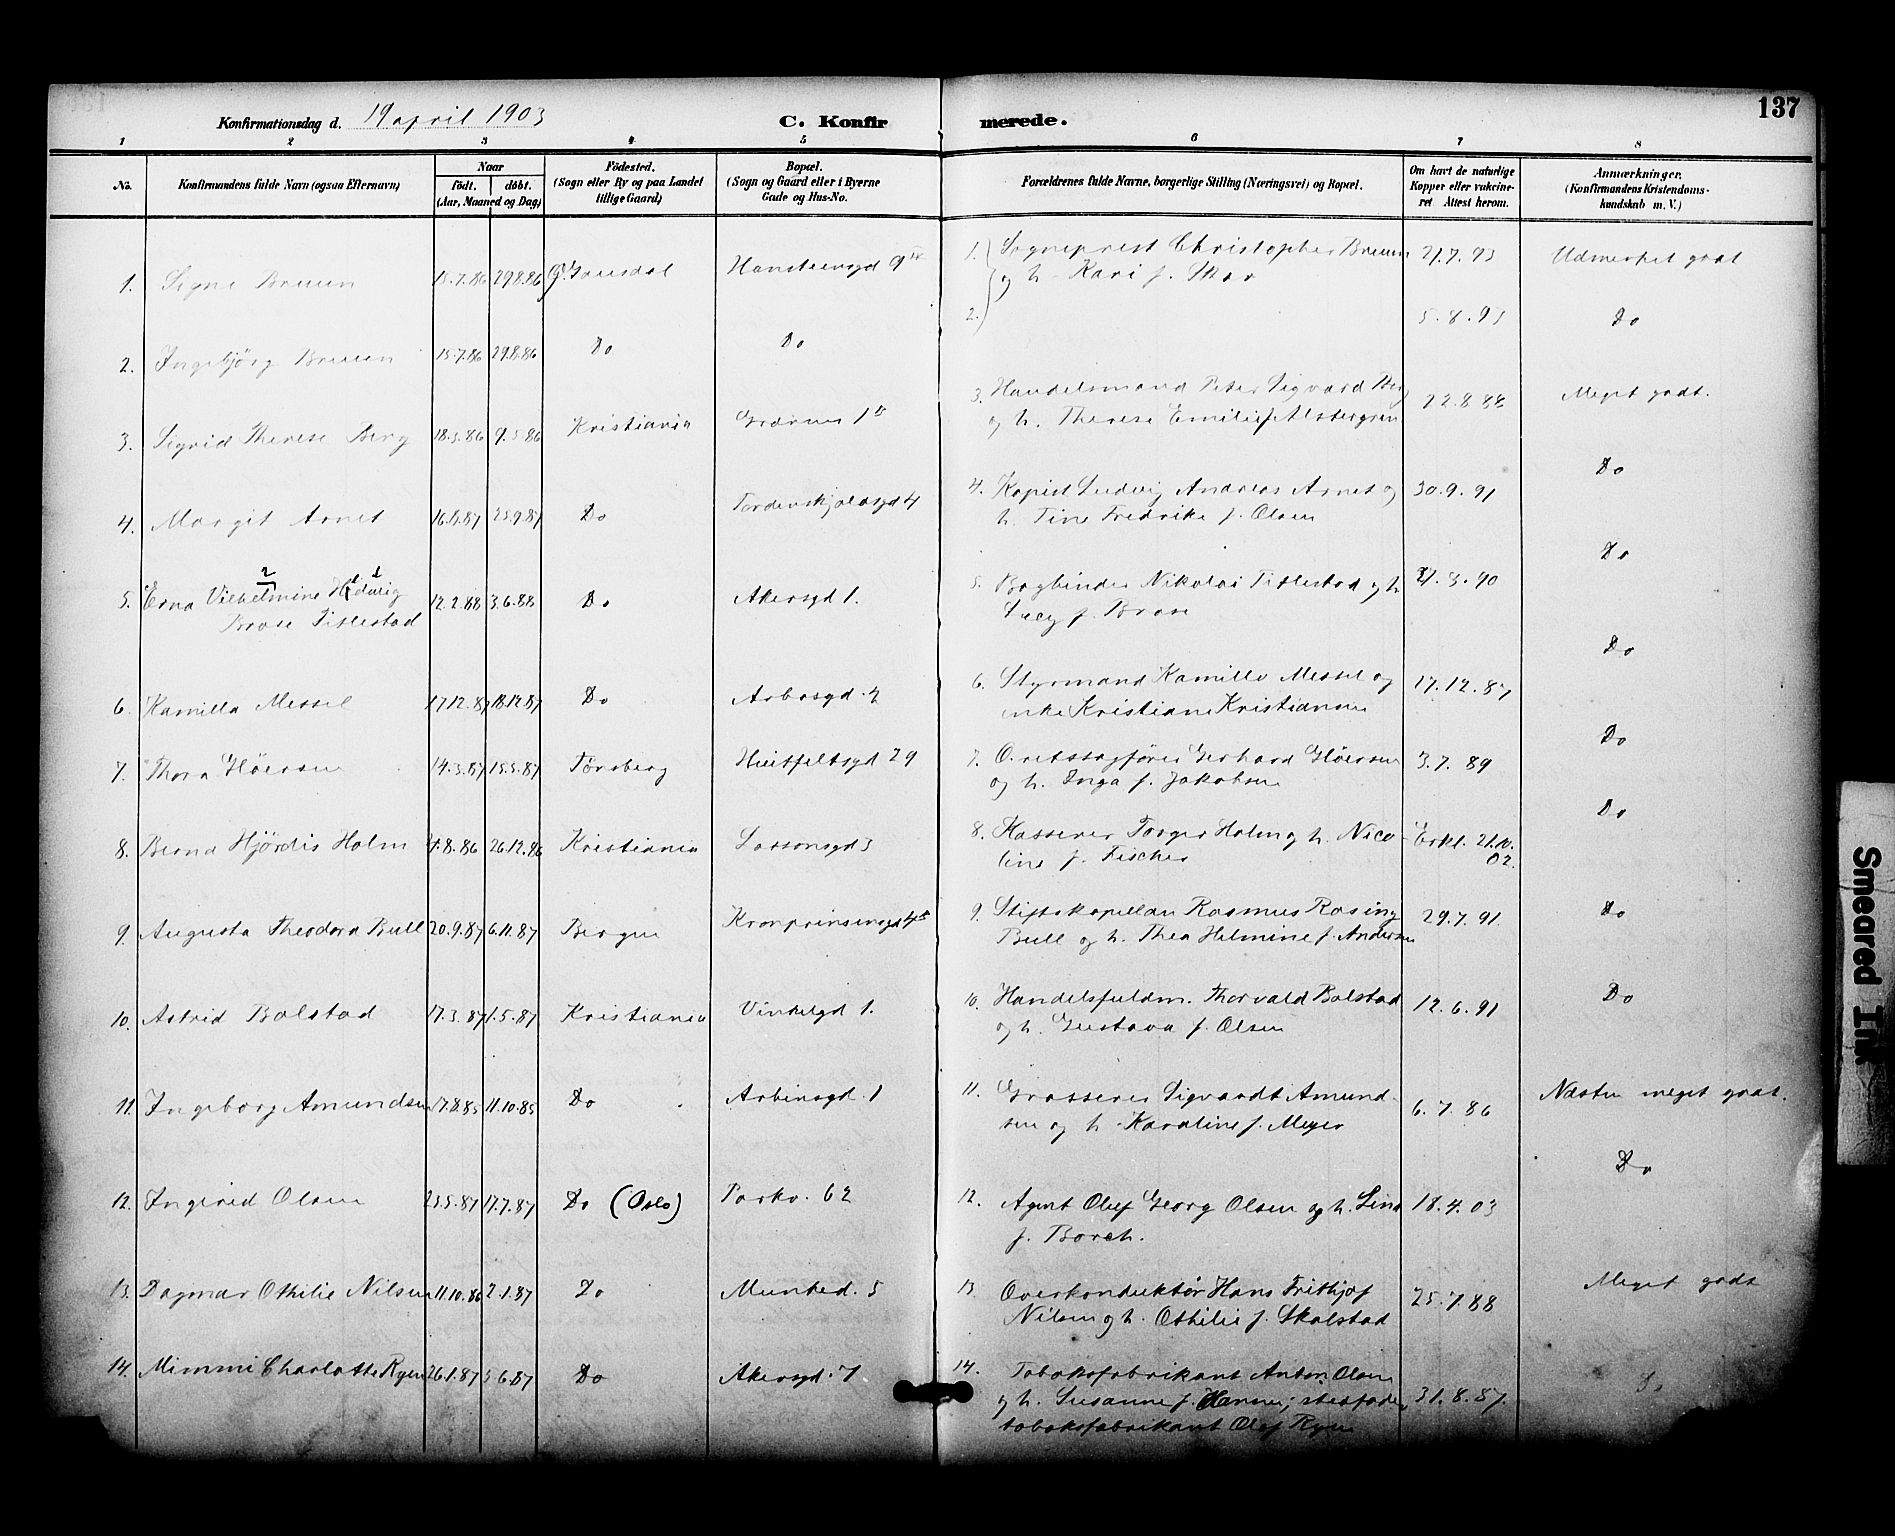 137
Konfirmationsdag d. 19 april 1903
C. Konfirmerede.
1 2 3 4 5 6 7 8
No.
Konfirmandens fulde Navn (ogsaa Efternavn)
Naar
født. døbt.
(Aar, Maaned og Dag)
Födested.
(Sogn eller By og paa Landet
tillige Gaard)
Bopæl.
(Sogn og Gaard eller i Byerne
Gade og Hus-No.
Forældrenes fulde Navne, borgerlige Stilling (Næringsvei) og Bopæl.
Om havt de naturlige
Kopper eller vakcine-
ret Attest herom.
Anmærkninger.
(Konfirmandens Kristendoms-
kundskab m. V.)
1. Signe Bruun 15.7.86 29.8.86 Gausdal Hansteensgd 9 1. Sogneprest Christopher Bruun 21.7.93 Udmerket godt
og h. Kari f. Skar
2. Ingebjörg Bruun 15.7.86 29.8.86 Do Do 2. 5.8.93 Do
3. Sigrid Therese Berg 18.3.86 9.5.86 Kristiania 3. Handelsmand Peter Sigvard Berg 22.8.88 Meget godt.
og h. Therese Emilie f.
4. Margit Arnet 16.8.87 25.9.87 Do Tordenskjoldsgd 4 4. Kopist Ludvig Andreas Arnet og 30.9.91 Do
h. Tine Fredrike f. Olsen
5. Erna Vilhelmine Hedvig 12.2.88 3.6.88 Do Akersgd 1. 5. Bogbinder Nikolai Tistestad og h. Do
Brose Tistestad
Lucy f. Brose
6. Kamilla Messel 17.12.87 18.12.87 Do 6. Styrmand Kamillo Messel og 17.12.87 Do
enke Kristiane Kristiansen
7. Thora Gløersen 14.3.87 15.5.87 Tønsberg Huitfeltsgd 29 7. O.retssagfører Gerhard Gløersen 3.7.89 Do
og h. Inga f. Jakobsen
8. Berna Hjördis Holm 8.86 26.12.86 Kristiania Lassonsgd 3 8. Kasserer Torger Holm og h. Nico- Erkl. 21.10. Do
line f. Fischer 02.
9. Augusta Theodora Bull 20.9.87 6.11.87 Bergen Kronprinsensgd 4 9. Stiftskapellan Rasmus Rosing 29.7.91 Do
Bull og h. Thea Helmine f. Andersen
10. Astrid Bolstad 17.3.87 1.5.87 Kristiania Vinkelgd 1. 10. Handelsfuldm. Thorvald Bolstad 12.6.91 Do
og h. Gustava f. Olsen
11. Ingeborg Amundsen 17.8.85 11.10.85 Do Arbinsgd. 1 11. Grosserer Sigvardt Amund- 6.7.86 Næsten meget godt.
sen og h. Karoline f. Meyer
12. Ingerid Olsen 23.5.87 17.7.87 Do (Oslo) Parkv. 62 12. Agent Olef Georg Olsen og h. Lina 18.4.03 Do
f. Borch.
13. Dagmar Othilie Nilsen 11.10.86 2.1.87 Do Munked. 5 13. Overkonduktör Hans Frithjof 25.7.88 Meget godt
Nilsen og h. Othilie f. Skolstad
14. Mimmi Charlotte Ryen 26.1.87 5.6.87 Do Akersgd. 7 14. Tobaksfabrikant Anton Olsen
og h. Susanne f. Hanne; stedfader, 31.8.87. Do
tobaksfabrikant Olef Ryen
Smeared Ink